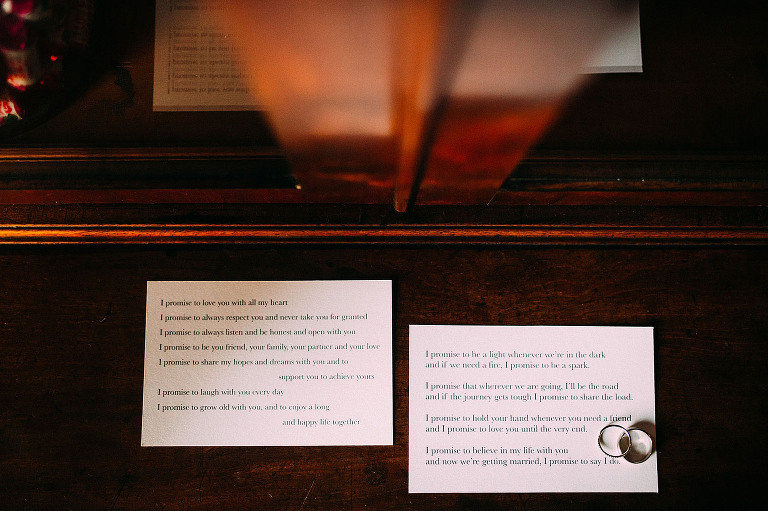 I promise to love you with all my heart
I promise to always respect you and never take you for granted
I promise to always listen and be honest and open with you
I promise to be you friend, your family, your partner and your love
I promise to share my hopes and dreams with you and to
support you to achieve yours
I promise to laugh with you every day
I promise to grow old with you, and to enjoy a long
and happy life together
I promise to be a light whenever we're in the dark
and if we need a fire, I promise to be a spark.
I promise that wherever we are going, I'll be the road
and if the journey gets tough I promise to share the load.
I promise to hold your hand whenever you need a friend
and I promise to love you until the very end.
I promise to believe in my life with you
and now we're getting married, I promise to say I do.